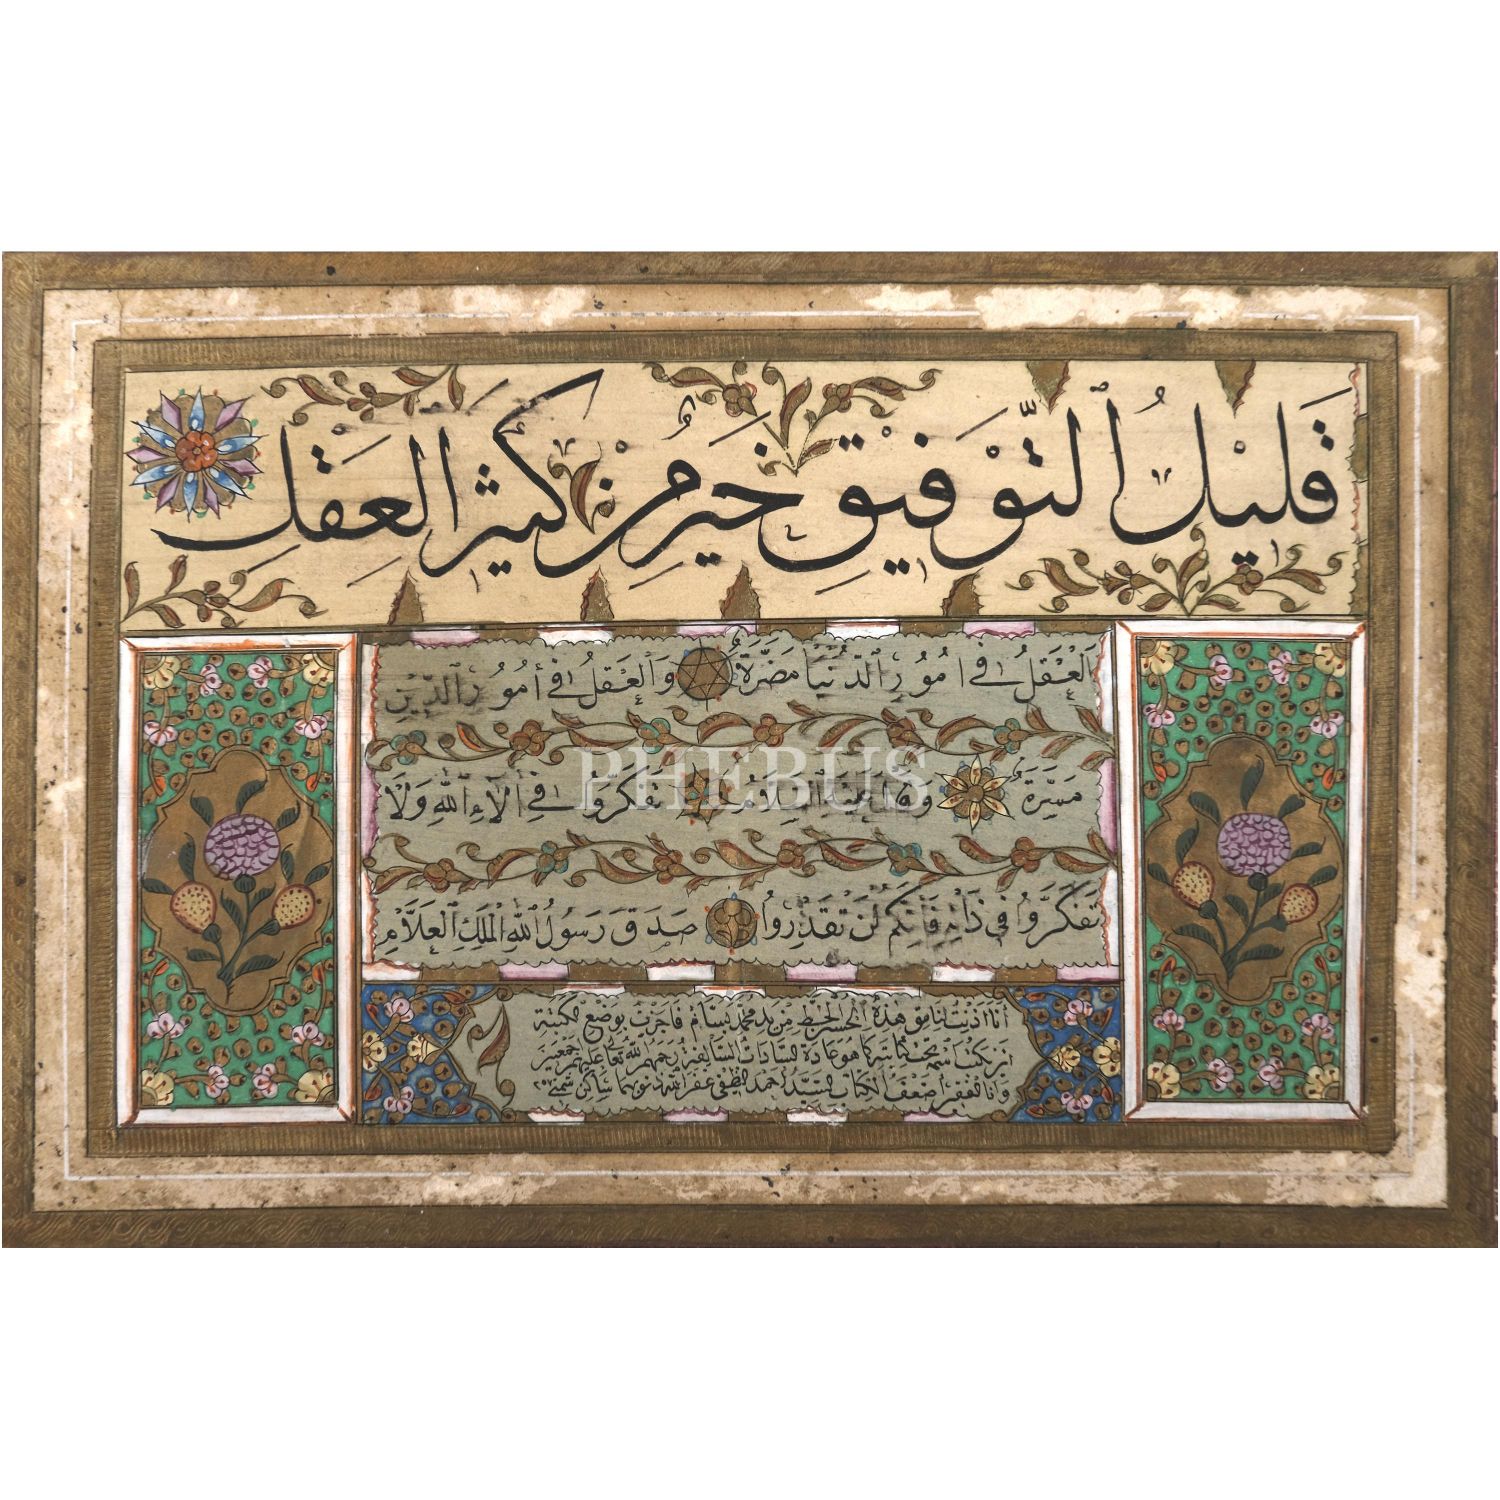 قَلِيلُ التَّوْفِيقِ خَيْرٌ مِنْ كَثِيرِ الْعَقْلِ
اَلْعَقْلُ فِي اُمُورِ الدُّنْيَا مَضَرَّةٌ وَالْعَقْلُ فِي أُمُورِ الدِّينِ
مَسَرَّةٌ وَقَالَ عَلَيْهِ السَّلَامُ تَفَكَّرُوا فِي آلَاءِ اللهِ وَلَا
تَفَكَّرُوا فِي ذَاتِهِ فَإِنَّكُمْ لَنْ تَقْدِرُوا صَدَقَ رَسُولُ اللهِ الْمَلِكِ الْعَلَّامِ
أنا أذنت لنامق هذه الحسن الخط من يد محمد بسام فاجزت بوضع الكتبة
كما هو عادة السادات السالفين رحمهم الله تعالى عليهم اجمعين
وانا افقر اضعف الكتاب السيد احمد غفر الله ذنوبهما
PHEBUS